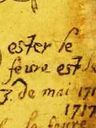 ester le
feure est d
3. de mai 171
1717
le feure